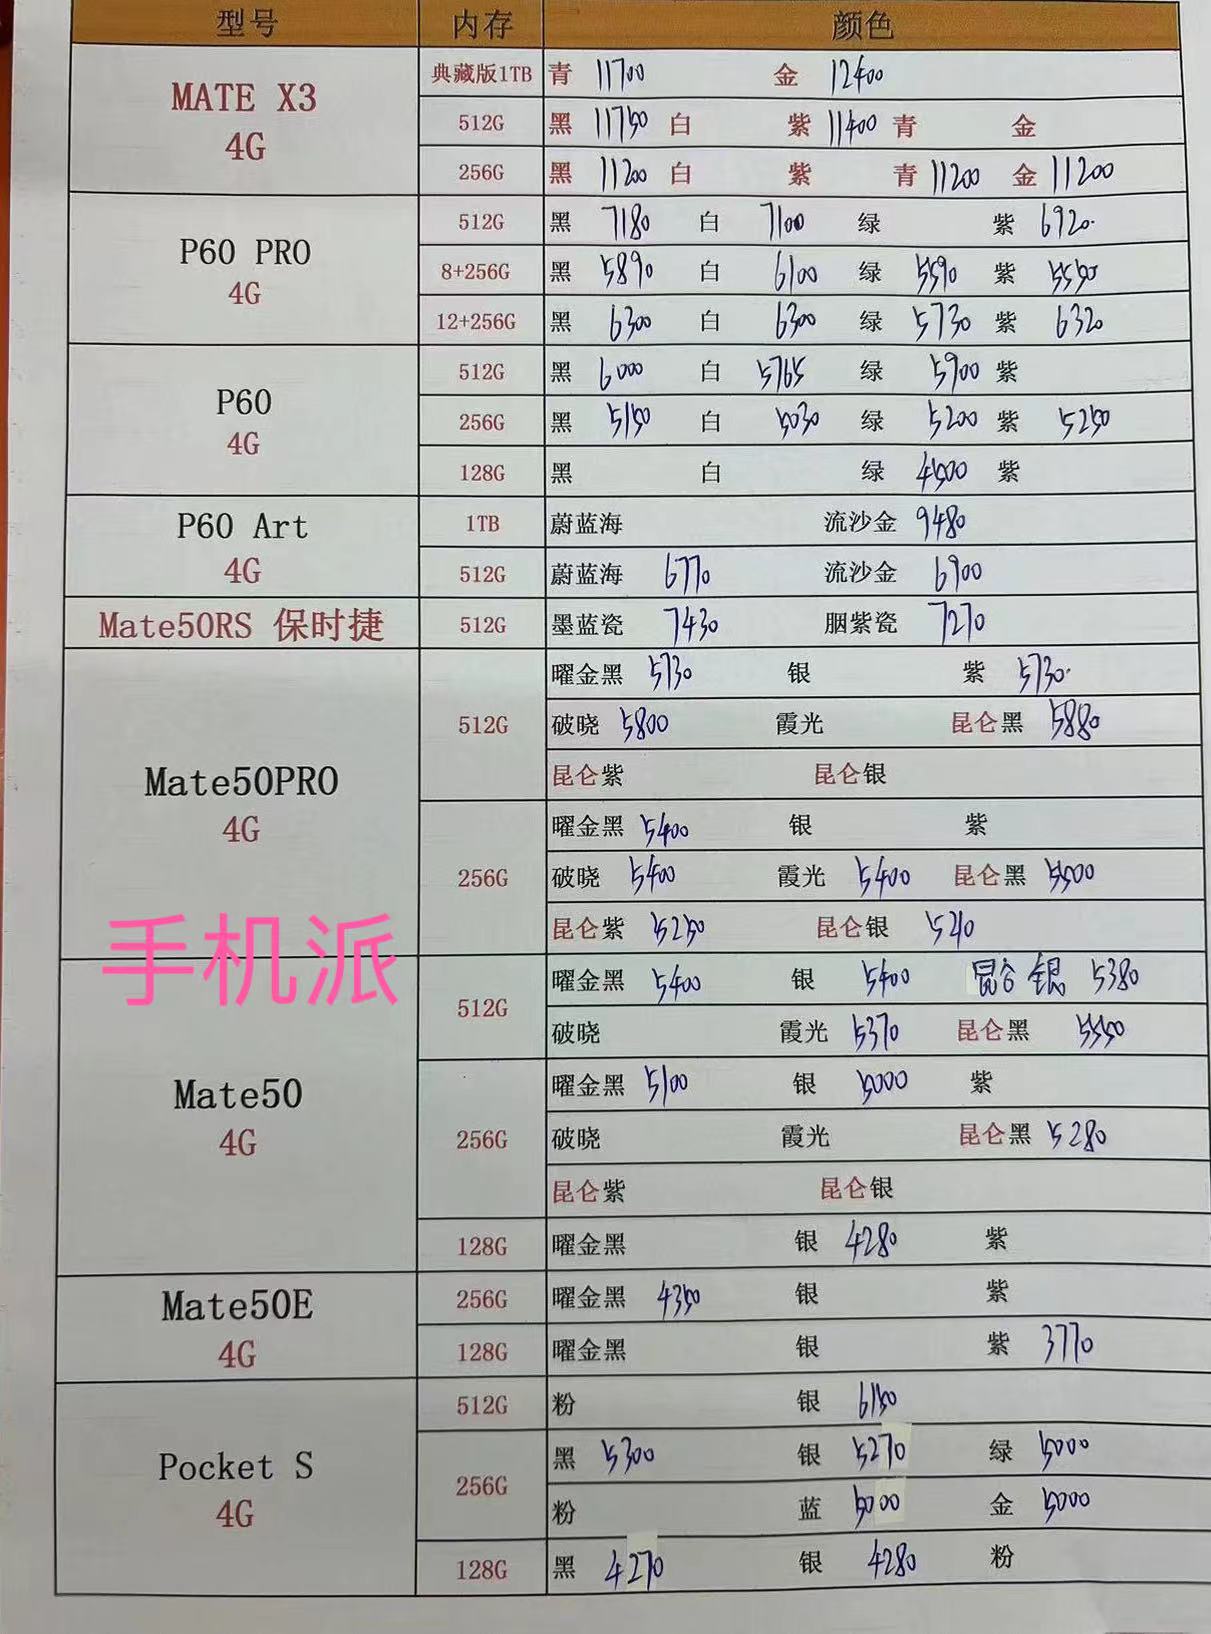 型号 内存 颜色
MATE X3
4G
典藏版1TB 青 11700 金 12400
512G 黑 11750 白 紫 11400 青 金
256G 黑 11200 白 紫 青 11200 金 11200
P60 PRO
4G
512G 黑 7180 白 7100 绿 紫 6920
8+256G 黑 5890 白 6100 绿 5590 紫 5550
12+256G 黑 6300 白 6300 绿 5730 紫 6320
P60
4G
512G 黑 6000 白 5765 绿 5900 紫
256G 黑 5150 白 5030 绿 5200 紫 5250
128G 黑 白 绿 4500 紫
P60 Art
4G
1TB 蔚蓝海 流沙金 9480
512G 蔚蓝海 6770 流沙金 6900
Mate50RS 保时捷 512G 墨蓝瓷 7430 胭紫瓷 7270
Mate50PRO
4G
512G
曜金黑 5730 银 紫 5730
破晓 5800 霞光 昆仑黑 5880
昆仑紫 昆仑银
256G
曜金黑 5400 银 紫
破晓 5400 霞光 5400 昆仑黑 5500
昆仑紫 5250 昆仑银
手机派
Mate50
4G
512G
曜金黑 5400 银 5400 昆仑银 5380
破晓 霞光 5370 昆仑黑 5550
256G
曜金黑 5100 银 5000 紫
破晓 霞光 昆仑黑 5280
昆仑紫 昆仑银
128G 曜金黑 银 4280 紫
Mate50E
4G
256G 曜金黑 4350 银 紫
128G 曜金黑 银 紫 3770
Pocket S
4G
512G 粉 银 6150
256G
黑 5300 银 5270 绿 5000
粉 蓝 5000 金 5000
128G 黑 4270 银 4280 粉